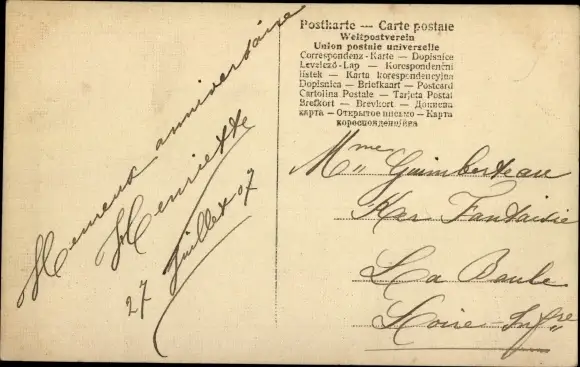 Heureux anniversaire
Henriette
27 Juillet 07
Postkarte — Carte postale
Weltpostverein
Union postale universelle
Correspondenz-Karte — Dopisnice
Levelező-Lap — Korespondenční
lístek — Karta korespondencyjna
Dopisnica — Briefkaart — Postcard
Cartolina Postale — Tarjeta Postal
Brefkort — Brevkort — Дописна
карта — Открытое письмо — Карта
кореспонденційна
Mme Guimberteau
Ker Fantaisie
La Baule
Loire-Infre